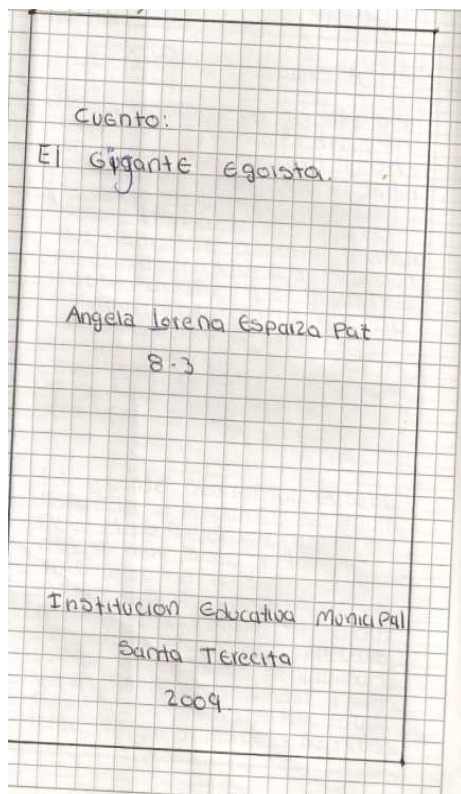 Cuento:
El Gigante Egoista.
Angela Lorena Esparza Pat
8-3
Institucion Educativa Municipal
Santa Terecita
2009.